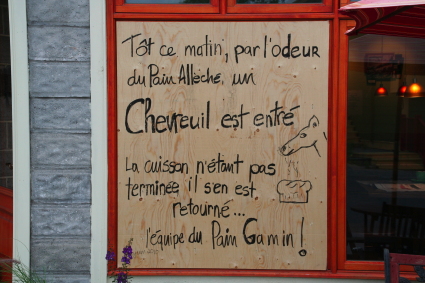 Tôt ce matin, par l'odeur
du Pain Alléché, un
Chevreuil est entré
La cuisson n'étant pas
terminée, il s'en est
retourné...
l'équipe du Pain Gamin!